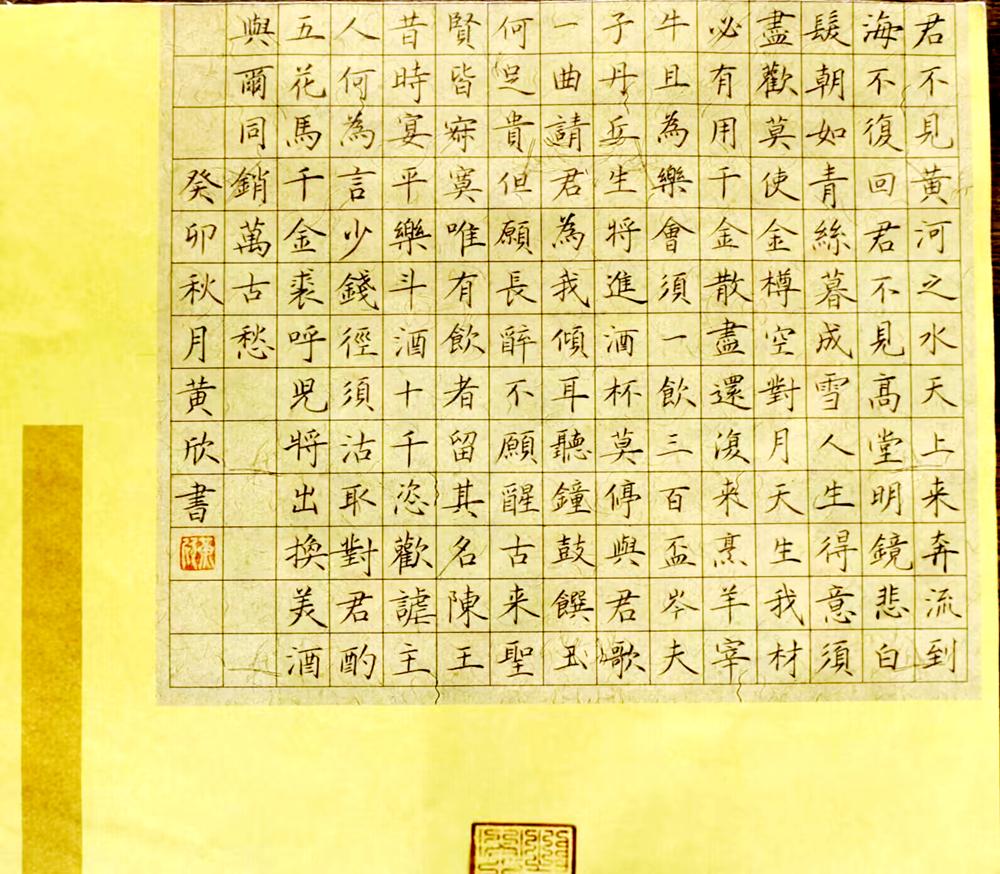 君不見黃河之水天上来奔流到
海不復回君不見高堂明鏡悲白
髮朝如青絲暮成雪人生得意須
盡歡莫使金樽空對月天生我材
必有用千金散盡還復来烹羊宰
牛且為樂會須一飲三百盃岑夫
子丹丘生將進酒杯莫停與君歌
一曲請君為我傾耳聽鐘鼓饌玉
何足貴但願長醉不願醒古来聖
賢皆寂寞唯有飲者留其名陳王
昔時宴平樂斗酒十千恣歡謔主
人何為言少錢徑須沽取對君酌
五花馬千金裘呼兒將出換美酒
與爾同銷萬古愁
癸卯秋月黃欣書